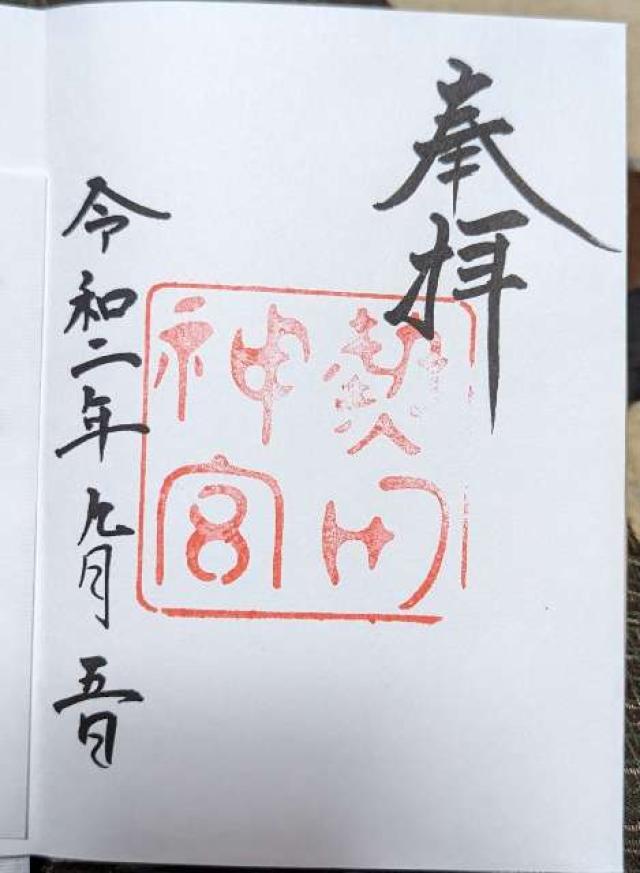 奉拝
熱田
神宮
令和二年九月五日